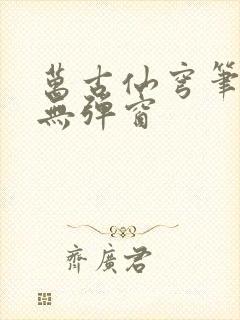 萬古仙穹筆
無彈窗
齊廣君